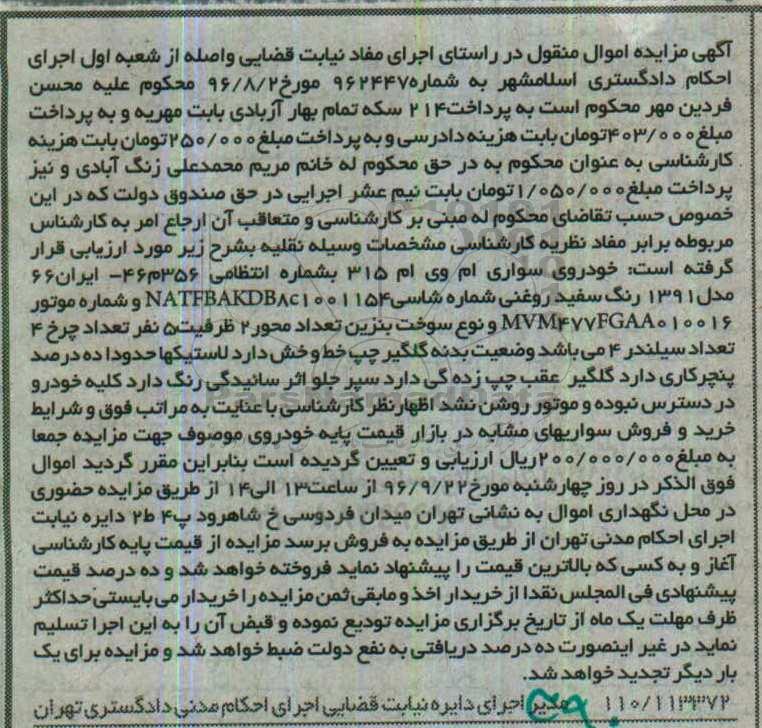 آگهی مزایده اموال منقول در راستای اجرای مفاد نیابت قضایی واصله از شعبه اول اجرای
احکام دادگستری اسلامشهر به شماره۹۶۲۴۴۷ مورخ۹۶/۸/۲ محکوم علیه محسن
فردین مهر محکوم است به پرداخت۲۱۴ سکه تمام بهار آزبادی بابت مهریه و به پرداخت
مبلغ۴۰۳/۰۰۰تومان بابت هزینه دادرسی و به پرداخت مبلغ۲۵۰/۰۰۰تومان بابت هزینه
کارشناسی به عنوان محکوم به در حق محکوم له خانم مریم محمدعلی زنگ آبادی و نیز
پرداخت مبلغ۱/۰۵۰/۰۰۰تومان بابت نیم عشر اجرایی در حق صندوق دولت که در این
خصوص حسب تقاضای محکوم له مبنی بر کارشناسی و متعاقب آن ارجاع امر به کارشناس
مربوطه برابر مفاد نظریه کارشناسی مشخصات وسیله نقلیه بشرح زیر مورد ارزیابی قرار
گرفته است: خودروی سواری ام وی ام ۳۱۵ بشماره انتظامی ۳۵۶م۴۶- ایران۶۶
مدل۱۳۹۱ رنگ سفید روغنی شماره شاسیNATFBAKDB۸c۱۰۰۱۱۵۴ و شماره موتور
MVM۴۷۷FGAA۰۱۰۰۱۶ و نوع سوخت بنزین تعداد محور۲ ظرفیت۵ نفر تعداد چرخ ۴
تعداد سیلندر ۴ می باشد وضعیت بدنه گلگیر چپ خط و خش دارد لاستیکها حدودا ده درصد
پنچرکاری دارد گلگیر عقب چپ زده گی دارد سپر جلو اثر سائیدگی رنگ دارد کلیه خودرو
در دسترس نبوده و موتور روشن نشد اظهارنظر کارشناسی با عنایت به مراتب فوق و شرایط
خرید و فروش سواریهای مشابه در بازار قیمت پایه خودروی موصوف جهت مزایده جمعا
به مبلغ۲۰۰/۰۰۰/۰۰۰ریال ارزیابی و تعیین گردیده است بنابراین مقرر گردید اموال
فوق الذکر در روز چهارشنبه مورخ۹۶/۹/۲۲ از ساعت۱۳ الی۱۴ از طریق مزایده حضوری
در محل نگهداری اموال به نشانی تهران میدان فردوسی خ شاهرود پ۴ ط۲ دایره نیابت
اجرای احکام مدنی تهران از طریق مزایده به فروش برسد مزایده از قیمت پایه کارشناسی
آغاز و به کسی که بالاترین قیمت را پیشنهاد نماید فروخته خواهد شد و ده درصد قیمت
پیشنهادی فی المجلس نقدا از خریدار اخذ و مابقی ثمن مزایده را خریدار می بایستی حداکثر
ظرف مهلت یک ماه از تاریخ برگزاری مزایده تودیع نموده و قبض آن را به این اجرا تسلیم
نماید در غیر اینصورت ده درصد دریافتی به نفع دولت ضبط خواهد شد و مزایده برای یک
بار دیگر تجدید خواهد شد.
۱۱۰/۱۱۳۳۷۲ مدیر اجرای دایره نیابت قضایی اجرای احکام مدنی دادگستری تهران